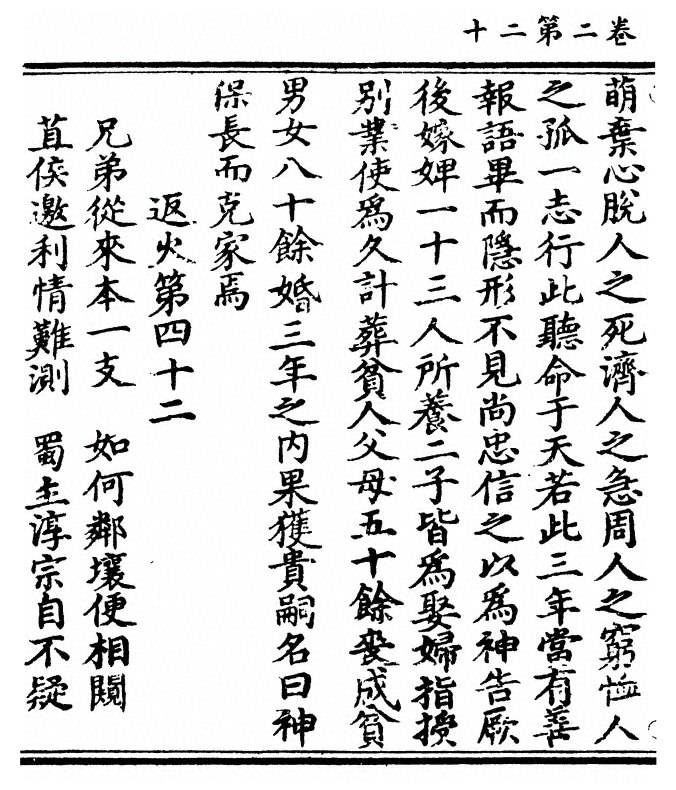 卷二第二十
萌棄心脫人之死濟人之急周人之窮恤人
之孤一志行此聽命于天若此三年當有善
報語畢而隱形不見尚忠信之以為神告厥
後嫁婢一十三人所養二子皆為娶婦指授
別業使為久計葬貧人父母五十餘喪成貧
男女八十餘婚三年之內果獲貴嗣名曰神
保長而克家焉
返火第四十二
兄弟從來本一支　如何鄰壤便相鬩
苴侯邀利情難測　蜀主淳宗自不疑